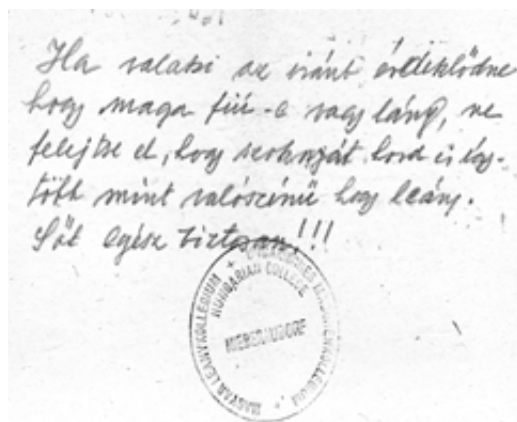 Ha valaki az iránt érdeklődne
hogy maga fiú-e vagy lány, ne
felejtse el, hogy szoknyát hord és így-
több mint valószinű hogy leány.
Sőt egész biztosan!!!
MAGYAR LEÁNYKOLLEGIUM +
HUNGARIAN COLLEGE
NIEDERAUDORF